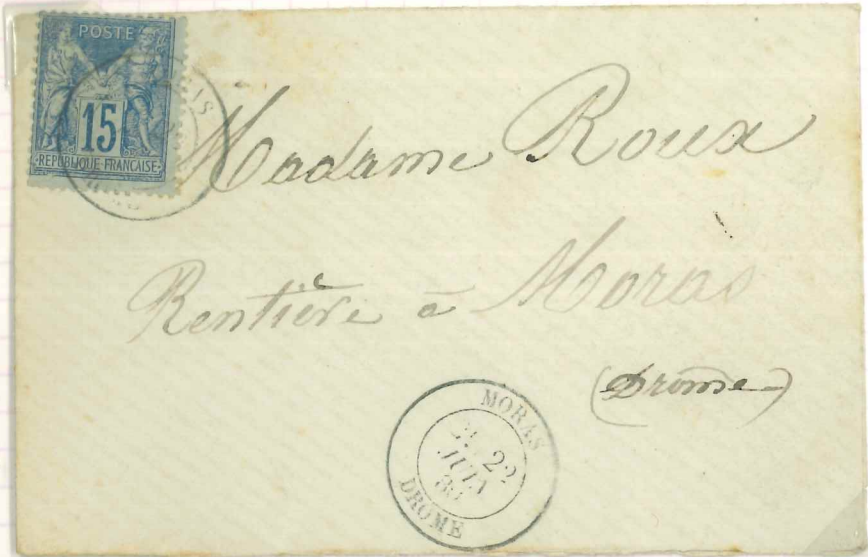 POSTE
15
REPUBLIQUE FRANÇAISE
Madame Roux
Rentière à Moras
(Drome)
MORAS
22
JUIN
DROME